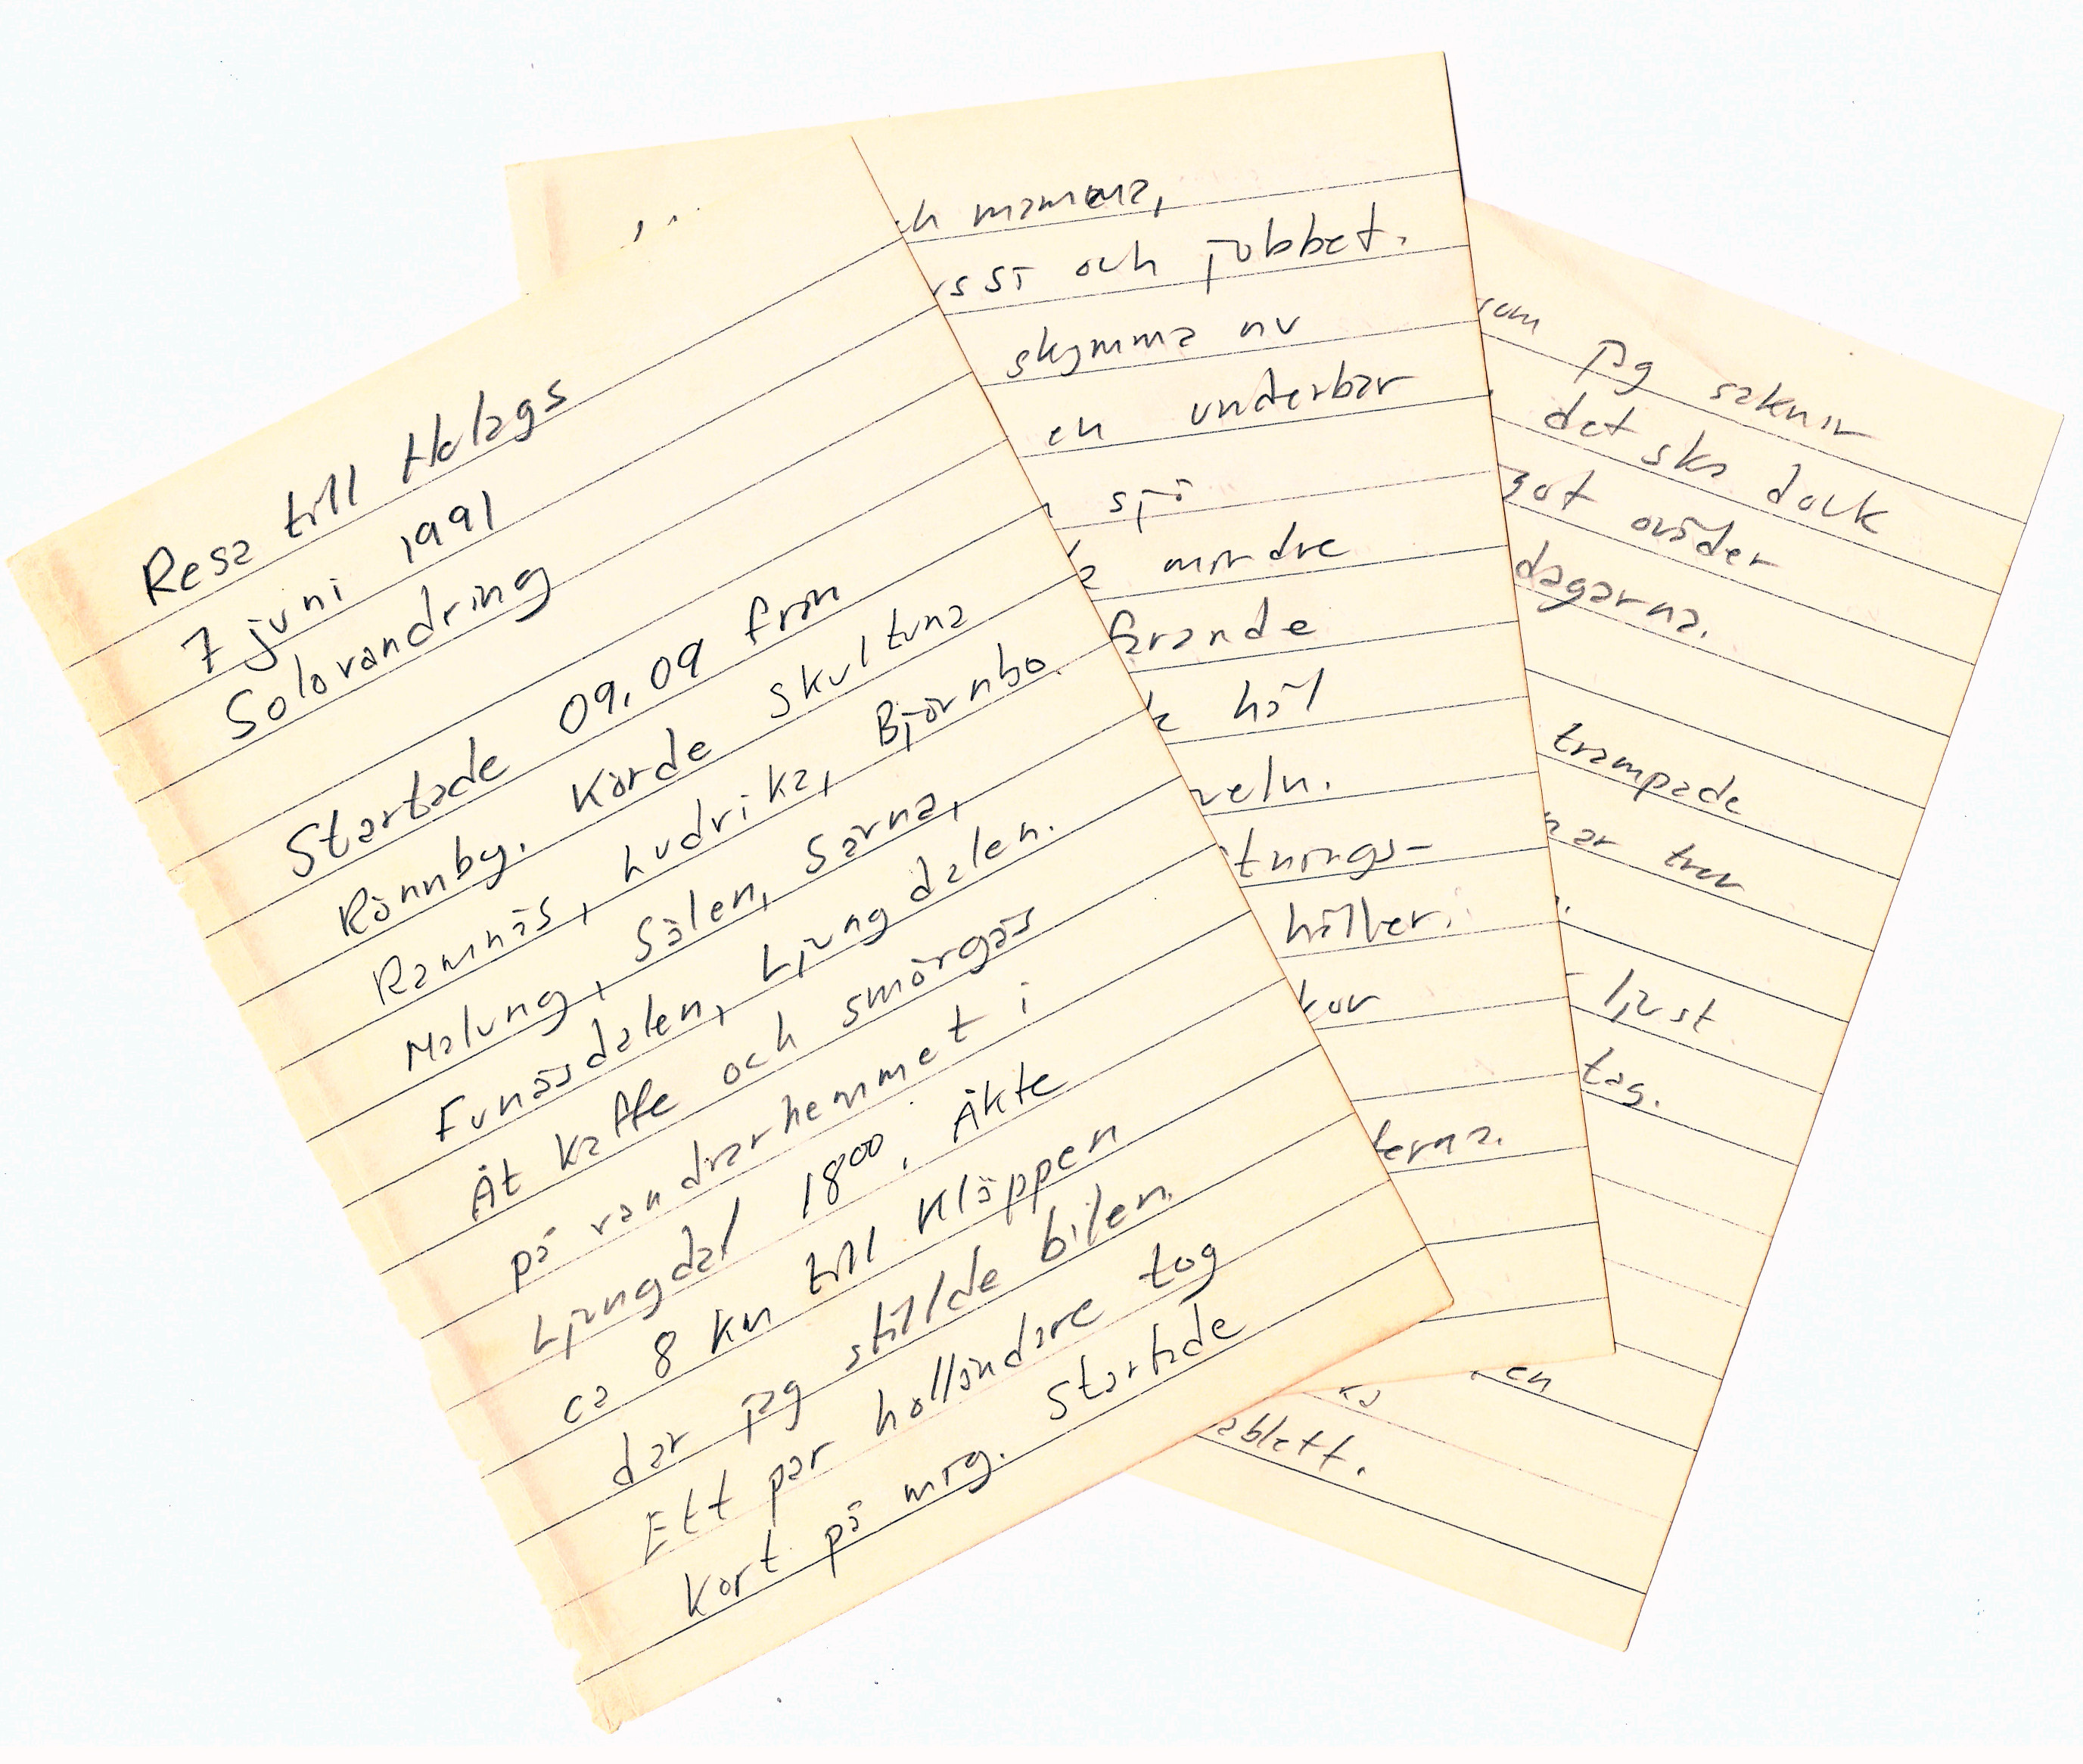 Resa till Helags
7 juni 1991
Solovandring
Startade 09.09 från
Rönnby. Körde Skultuna
Ramnäs, Ludvika, Björnbo.
Malung, Sälen, Särna,
Funäsdalen, Ljungdalen.
Åt kaffe och smörgås
på vandrarhemmet i
Ljungdal 18⁰⁰. Åkte
ca 8 km till Kläppen
där jag ställde bilen.
Ett par holländare tog
kort på mig. Startade
ch mamma,
och jobbet.
skymma nu
en underbar
sjö
mindre
farande
k hål
veln.
tnings-
hålber.
kor
terna.
som jag saknar
det ska dock
got oväder
dagarna.
trampade
när tror
ljust
tag.
en
ablett.